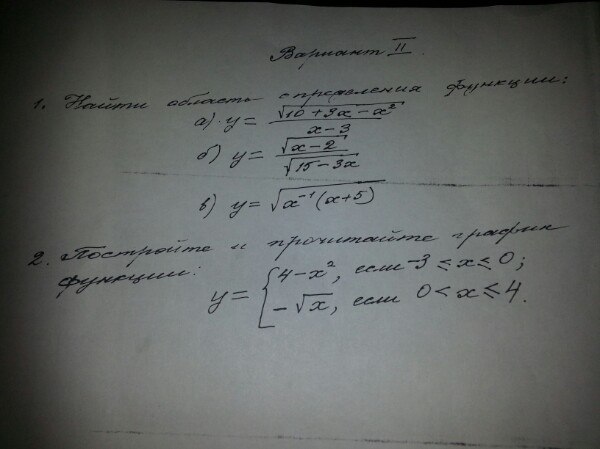 Вариант II.
1. Найти область определения функции:
а) y = √(10 + 3x - x²) / (x - 3)
б) y = √(x - 2) / √(15 - 3x)
в) y = √(x⁻¹(x+5))
2. Постройте и прочитайте график
функции:
y = { 4 - x², если -3 ≤ x ≤ 0;
- √x, если 0 < x ≤ 4.